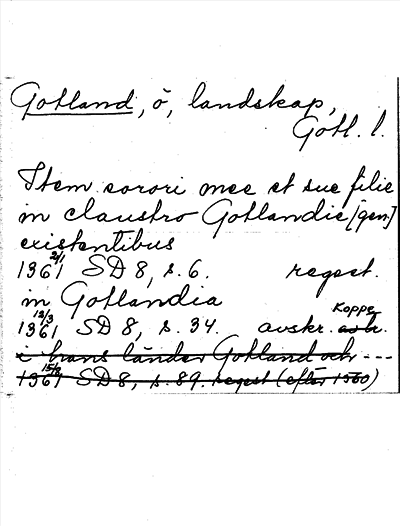 Gotland, ö, landskap,
Gotl. l.
Item sorori mee et sue filie
in claustro Gotlandie [gen.]
existentibus
1361 2/1 SD 8, s. 6. regest.
in Gotlandia
Koppe
1361 12/3 SD 8, s. 34. avskr.
i hans länder Gotland och ---
1361 15/8 SD 8, s. 89. regest (efter 1360)